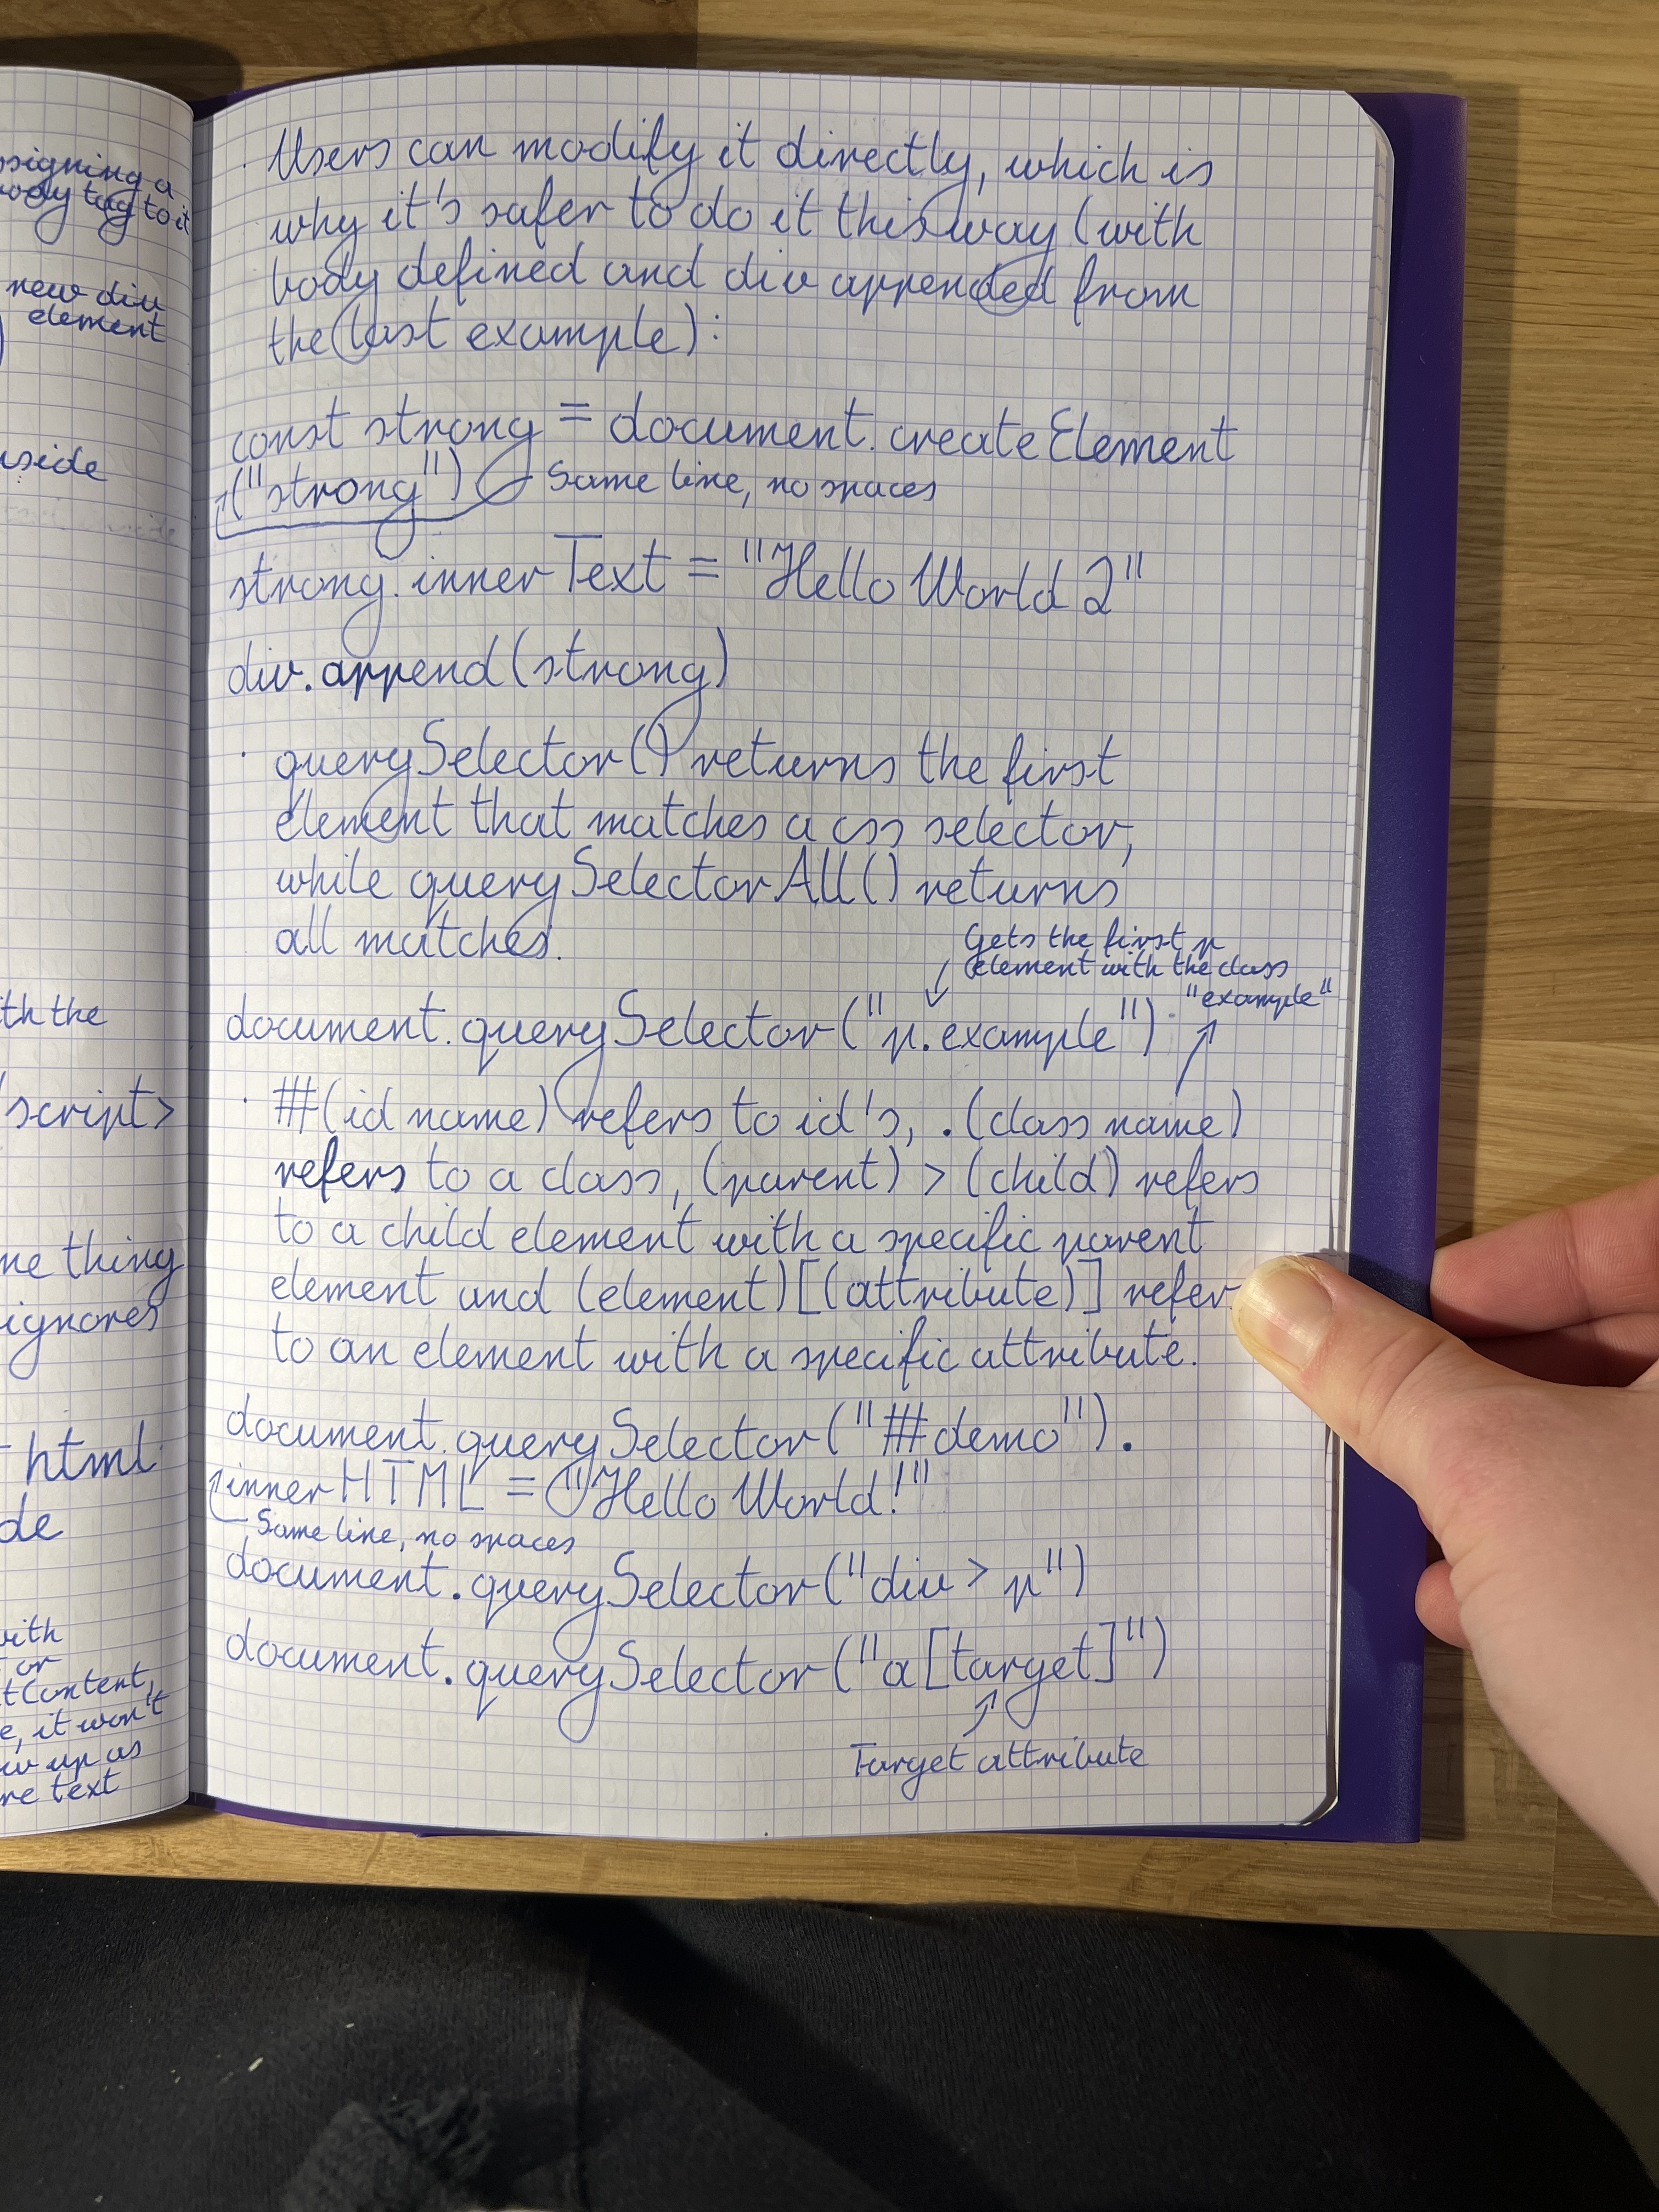 ssigning a
body tag to it
new div
element
iside
th the
/script>
me thing
ignores
html
de
with
or
tContent,
e, it won't
w up as
re text
· Users can modify it directly, which is
why it's safer to do it this way (with
body defined and div appended from
the last example):
const strong = document.createElement
("strong") Same line, no spaces
strong.innerText = "Hello World 2"
div.append(strong)
· querySelector() returns the first
element that matches a css selector,
while querySelectorAll() returns
all matches.
Gets the first p
element with the class
"example"
document.querySelector("p.example")
· #(id name) refers to id's, .(class name)
refers to a class, (parent) > (child) refers
to a child element with a specific parent
element and (element)[(attribute)] refer
to an element with a specific attribute.
document.querySelector("#demo").
innerHTML = "Hello World!"
Same line, no spaces
document.querySelector("div > p")
document.querySelector("a[target]")
Target attribute